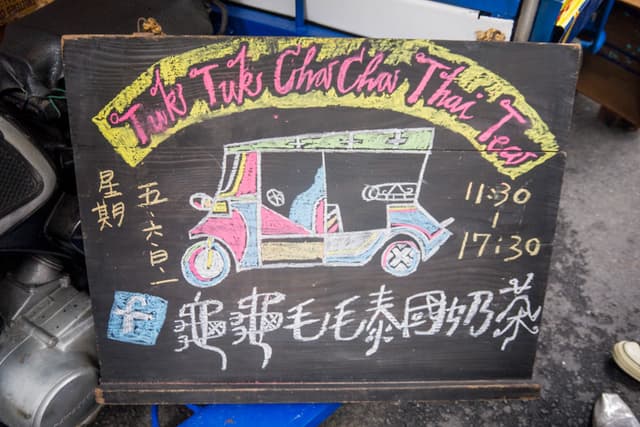 Tuk Tuk Cha Cha Thai Tea
星期
五.六.日.一
11:30
|
17:30
f
龜龜毛毛泰國奶茶